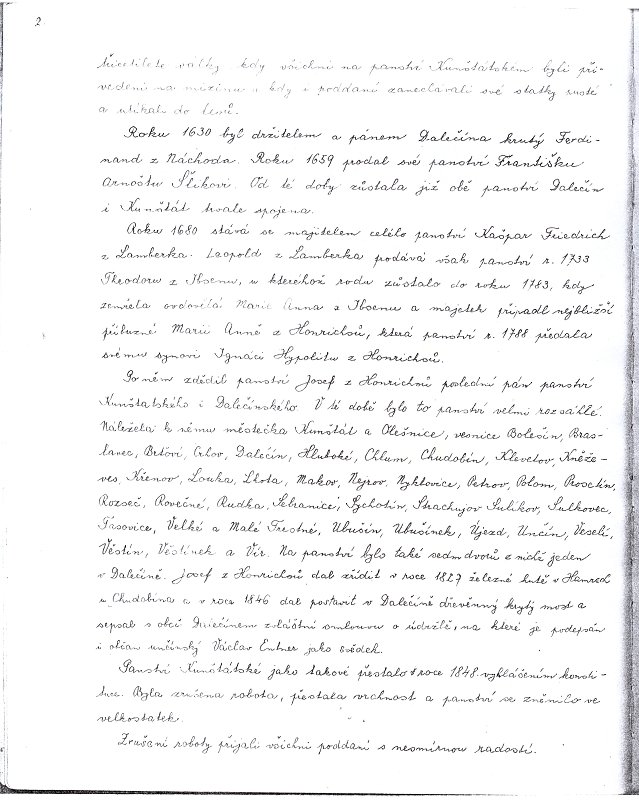 2
třicetileté války kdy všichni na panství Kunštátském byli při-
vedeni na mizinu a kdy i poddaní zanechávali své statky pusté
a utíkali do lesů.
Roku 1630 byl držitelem a pánem Dalečína krutý Ferdi-
nand z Náchoda. Roku 1659 prodal své panství Františku
Arnoštu Šlikovi. Od té doby zůstala již obě panství Dalečín
i Kunštát trvale spojena.
Roku 1680 stává se majitelem celého panství Kašpar Friedrich
z Lamberka. Leopold z Lamberka prodává však panství r. 1733
Theodoru z Ibsenu, v kteréhož rodu zůstalo do roku 1783, kdy
zemřela ovdovělá Marie Anna z Ibsenu a majetek připadl nejbližší
příbuzné Marii Anně z Honrichsů, která panství r. 1788 předala
svému synovi Ignáci Hypolitu z Honrichsů.
Po něm zdědil panství Josef z Honrichsů poslední pán panství
Kunštatského i Dalečínského. V té době bylo to panství velmi rozsáhlé.
Náležela k němu městečka Kunštát a Olešnice, vesnice Bolešín, Bras-
lavec, Brťoví, Crhov, Dalečín, Hluboké, Chlum, Chudobín, Klevetov, Kněže-
ves, Křenov, Louka, Lhota, Makov, Nyrov, Nyklovice, Petrov, Polom, Prosetín,
Rozseč, Rovečné, Rudka, Sebranice, Sychotín, Strachujov, Sulíkov, Sulkovec,
Tasovice, Velké a Malé Tresné, Ubušín, Ubušínek, Újezd, Unčín, Veselí,
Věstín, Věstínek a Vír. Na panství bylo také sedm dvorů z nichž jeden
v Dalečíně. Josef z Honrichsů dal zřídit v roce 1827 železné hutě v Hamrech
u Chudobína a v roce 1846 dal postavit v Dalečíně dřevěnný krytý most a
sepsal s obcí Dalečínem zvláštní smlouvu o údržbě, na které je podepsán
i občan unčínský Václav Entner jako svědek.
Panství Kunštátské jako takové přestalo v roce 1848 vyhlášením konsti-
tuce. Byla zrušena robota, přestala vrchnost a panství se změnilo ve
velkostatek.
Zrušení roboty přijali všichni poddaní s nesmírnou radostí.